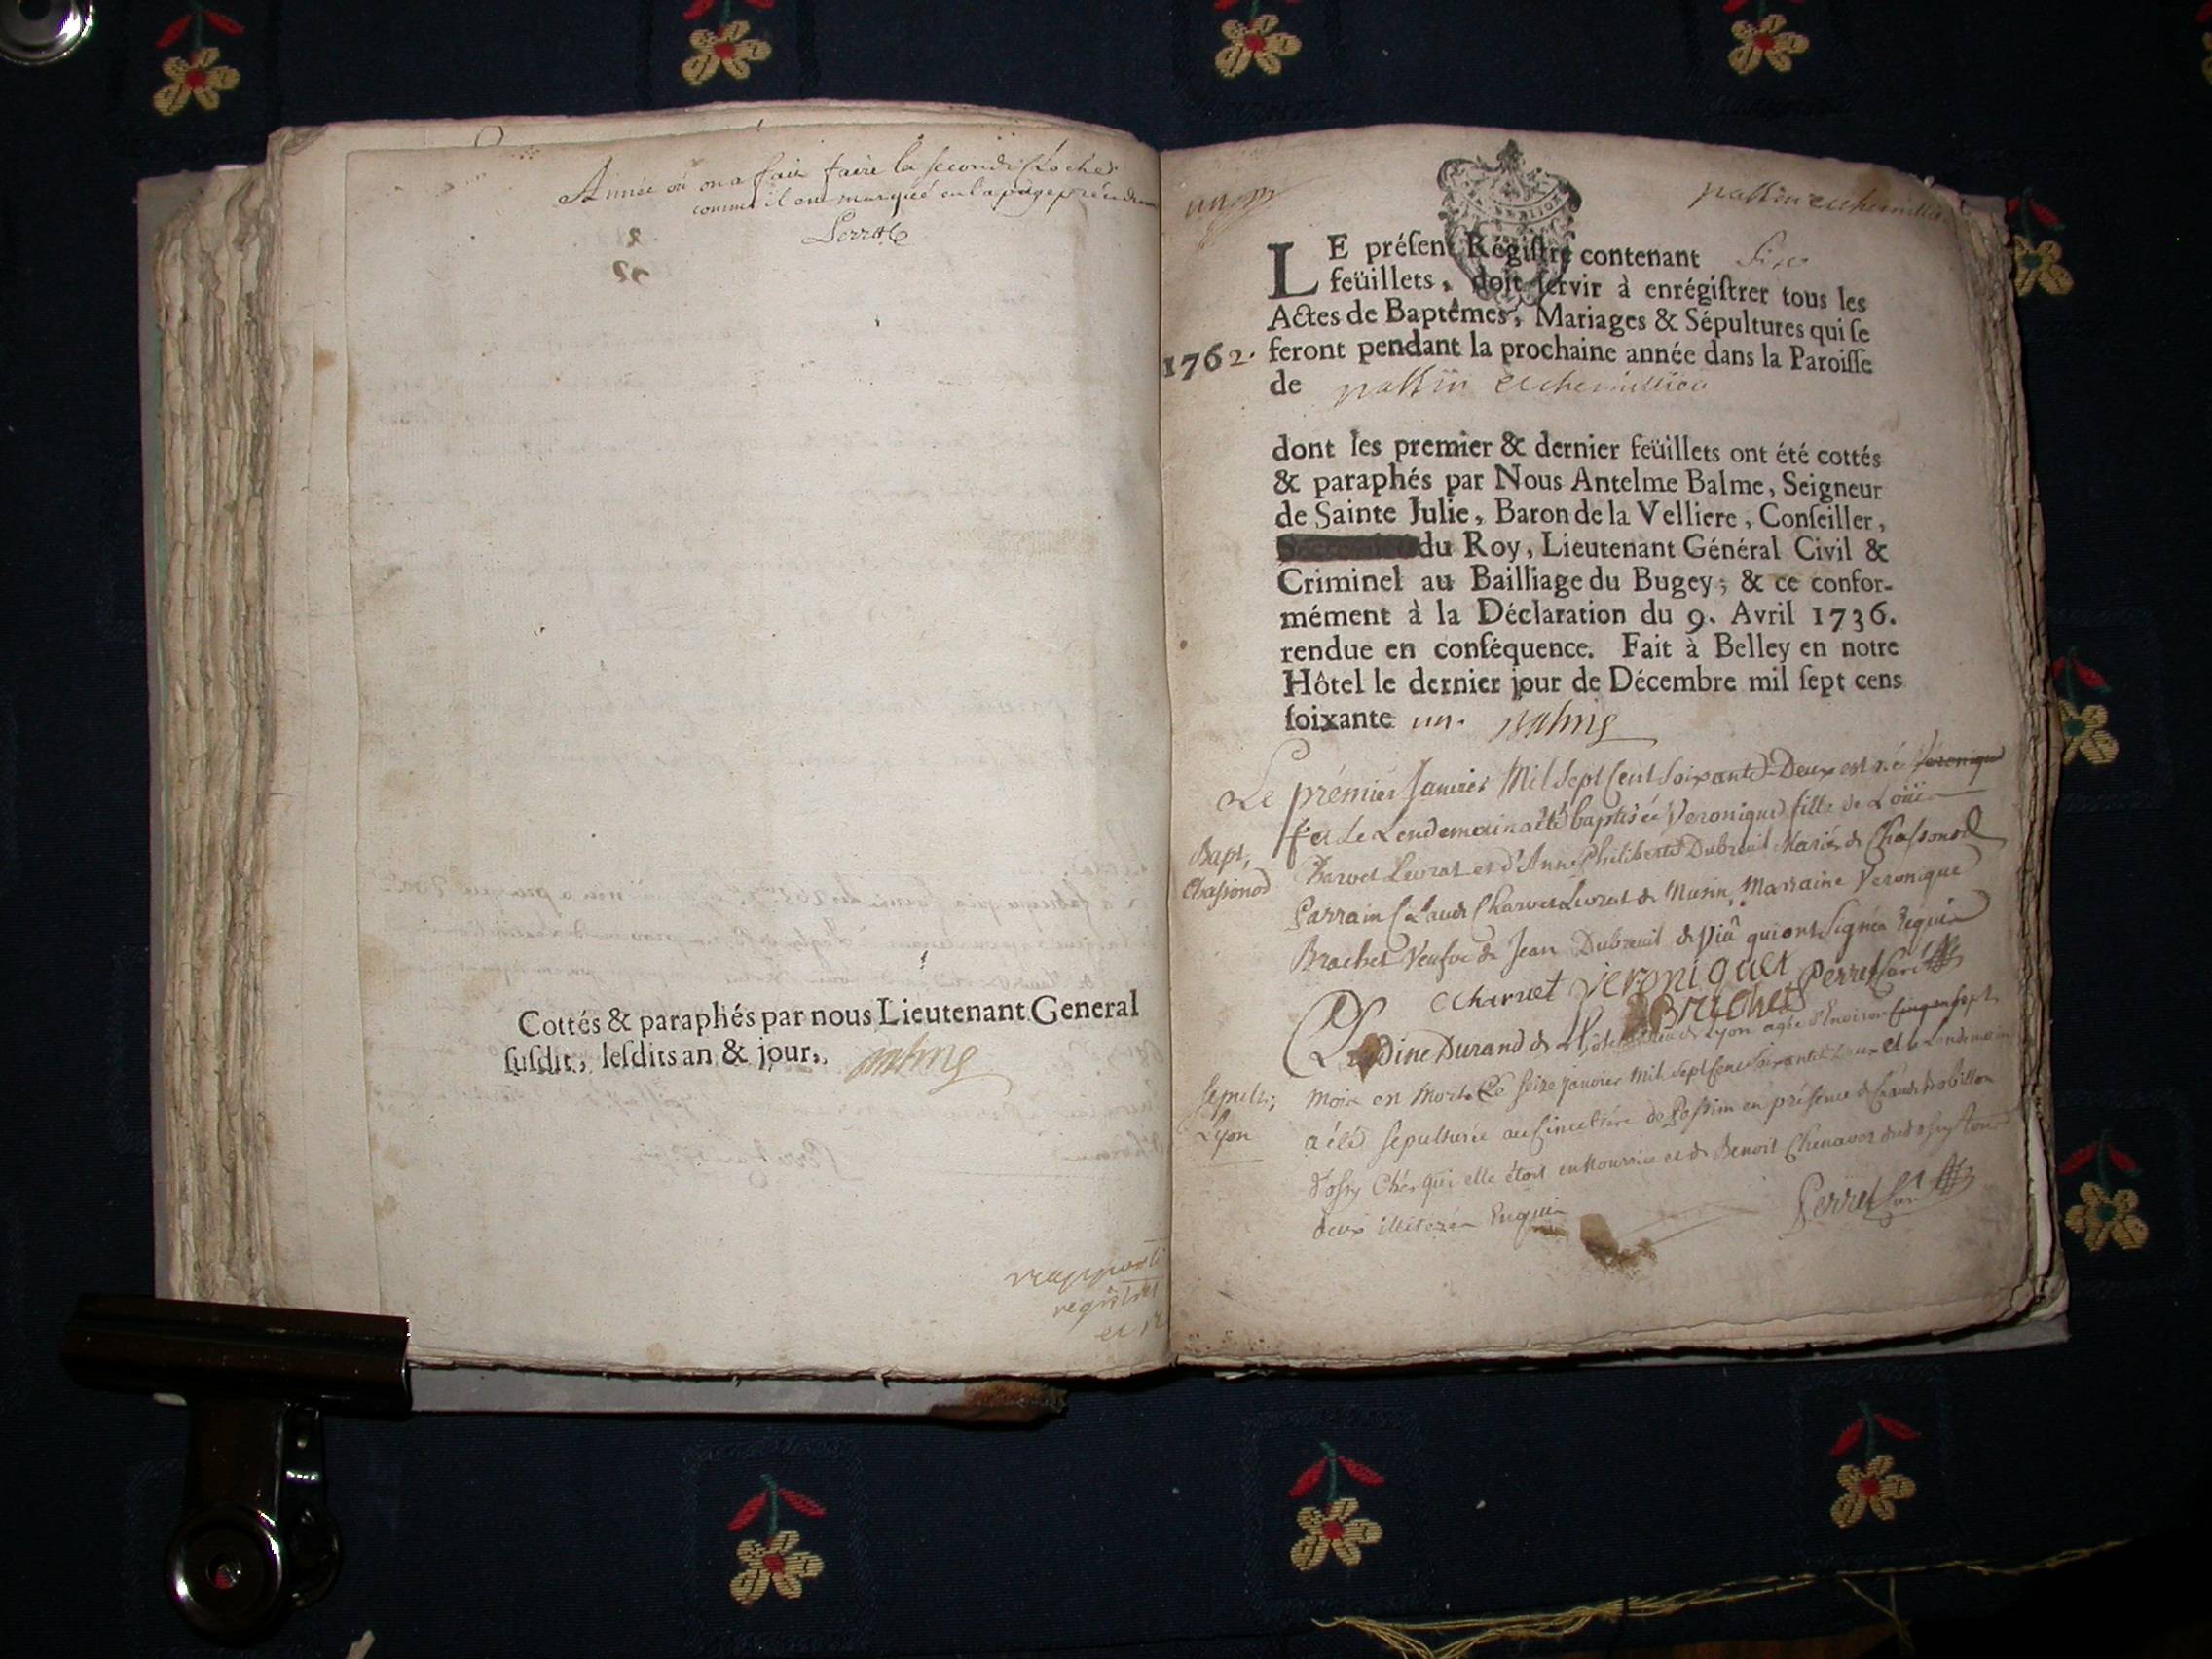 Année où on a fait faire la seconde Cloche
comme il est marqué en la page précedente
Perret C
Cottés & paraphés par nous Lieutenant General
ſuſdit, leſdits an & jour.
registres
LE préſent Régiſtre contenant Six
feüillets, doit ſervir à enrégiſtrer tous les
Actes de Baptêmes, Mariages & Sépultures qui ſe
1762. feront pendant la prochaine année dans la Paroiſſe
de
dont les premier & dernier feüillets ont été cottés
& paraphés par Nous Antelme Balme, Seigneur
de Sainte Julie, Baron de la Velliere, Conſeiller,
du Roy, Lieutenant Général Civil &
Criminel au Bailliage du Bugey; & ce confor-
mément à la Déclaration du 9. Avril 1736.
rendue en conſéquence. Fait à Belley en notre
Hôtel le dernier jour de Décembre mil ſept cens
ſoixante un. Balme
Le prémier Janvier Mil Sept Cent Soixante Deux est née Veronique
et Le Lendemain a été baptisée Veronique fille de Loüis
Bapt,
Chassonod
Charvet Levrat et d'Anne Philiberte Dubreuil Mariés de Chassonod
Parrain Claude Charvet Levrat de Musin, Marraine Veronique
Brachet Veufve de Jean Dubreuil de qui ont Signéz Requis
Charvet Veronique Brachet Perret Curé
Claudine Durand de Lyon agée d'Environ Cinq
Sepult;
Lyon
Mois est Morte Le Seize janvier Mil Sept Cent Soixante Deux et le Lendemain
a été sepulturée au Cimetiére de en présence de Claude
Chés qui elle étoit en Nourrice et de Benoit
deux illiteréz Enquis
Perret Curé